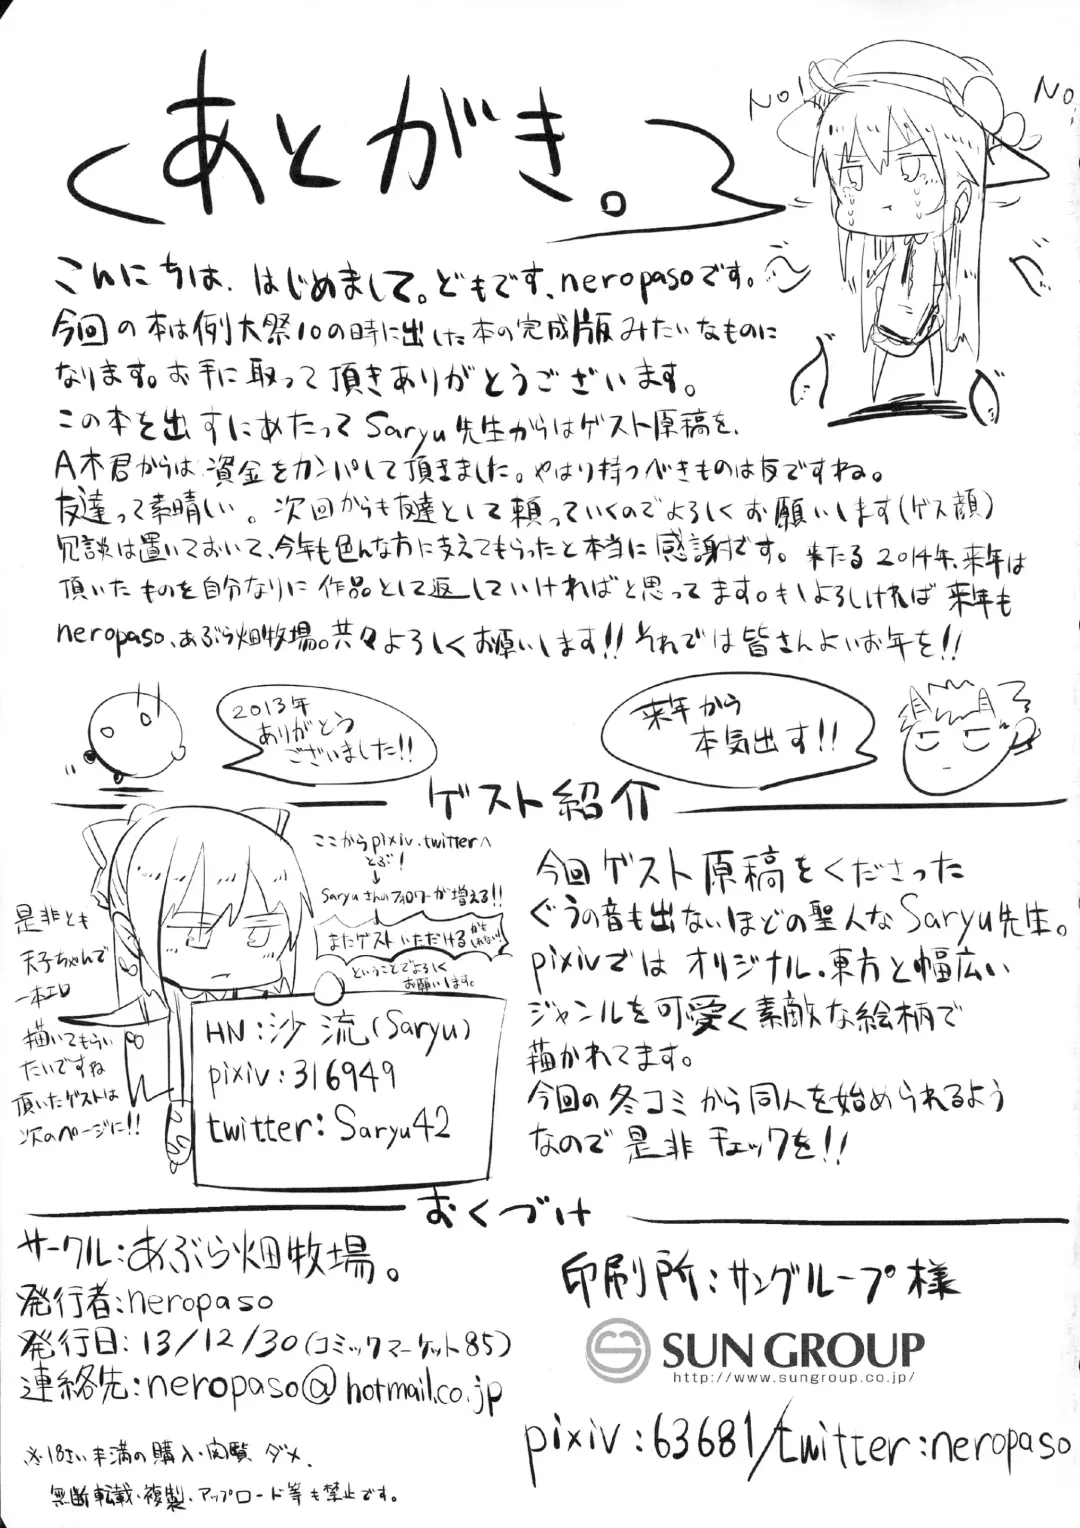 あとがき。
No!
No
こんにちは、はじめまして。どもです、neropasoです。
今回の本は例大祭10の時に出した本の完成版みたいなものに
なります。お手に取って頂きありがとうございます。
この本を出すにあたってSaryu先生からはゲスト原稿を、
A木君からは資金をカンパして頂きました。やはり持つべきものは友ですね。
友達って素晴しい。次回からも友達として頼っていくのでよろしくお願いします(ゲス顔)
冗談は置いておいて、今年も色んな方に支えてもらったと本当に感謝です。来たる2014年、来年は
頂いたものを自分なりに作品として返していければと思ってます。もしよろしければ来年も
neropaso、あぶら畑牧場。共々よろしくお願いします!!それでは皆さんよいお年を!!
2013年
ありがとう
ございました!!
来年から
本気出す!!
ゲスト紹介
ここからpixiv、twitterへ
とぶ!
↓
Saryuさんのフォロワーが増える!!
またゲストいただけるかもしれない!
ということでよろしく
お願いします。
是非とも
天子ちゃんで
一本エロ
描いてもらい
たいですね
頂いたゲストは
次のページに!!
HN:沙流(Saryu)
pixiv:316949
twitter:Saryu42
今回ゲスト原稿をくださった
ぐうの音も出ないほどの聖人なSaryu先生。
pixivではオリジナル、東方と幅広い
ジャンルを可愛く素敵な絵柄で
描かれてます。
今回の冬コミから同人を始められるよう
なので是非チェックを!!
おくづけ
サークル:あぶら畑牧場。
発行者:neropaso
発行日:13/12/30(コミックマーケット85)
連絡先:neropaso@hotmail.co.jp
※18さい未満の購入・閲覧ダメ、
無断転載・複製・アップロード等も禁止です。
印刷所:サングループ様
SUN GROUP
http://www.sungroup.co.jp/
pixiv:63681/twitter:neropaso